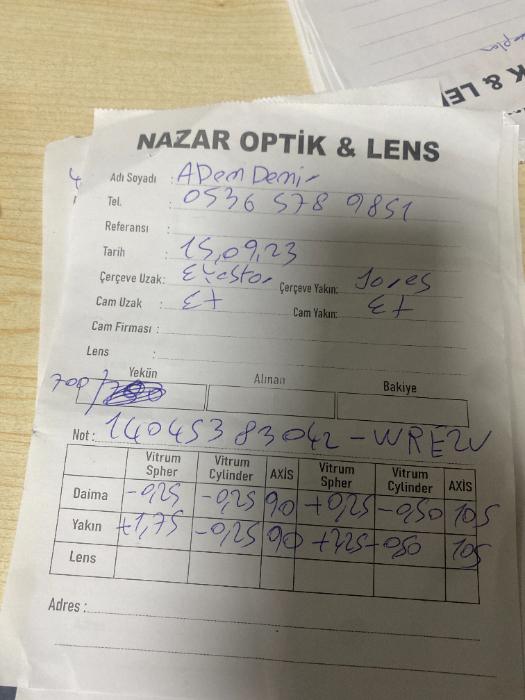 NAZAR OPTİK & LENS
Adı Soyadı : ADem Demir
Tel. : 0536 578 9851
Referansı :
Tarih : 15,09,23
Çerçeve Uzak: Çerçeve Yakın: Jores
Cam Uzak : Et Cam Yakın: Et
Cam Firması :
Lens :
Yekün Alınan Bakiye
700
Not : 14045383042-WRE2V
Vitrum Spher Vitrum Cylinder AXİS Vitrum Spher Vitrum Cylinder AXİS
Daima -0,25 -0,25 90 +0,25 -0,50 105
Yakın +1,75 -0,25 90 +2,25 -0,50 105
Lens
Adres :